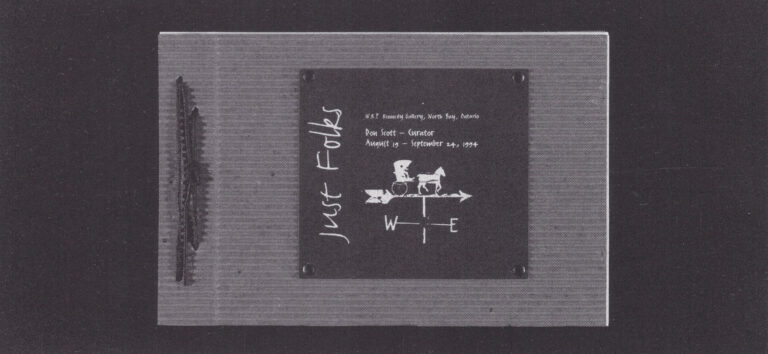 Just Folks
W.K.P. Kennedy Gallery, North Bay, Ontario
Don Scott – Curator
August 19 – September 24, 1994
W E